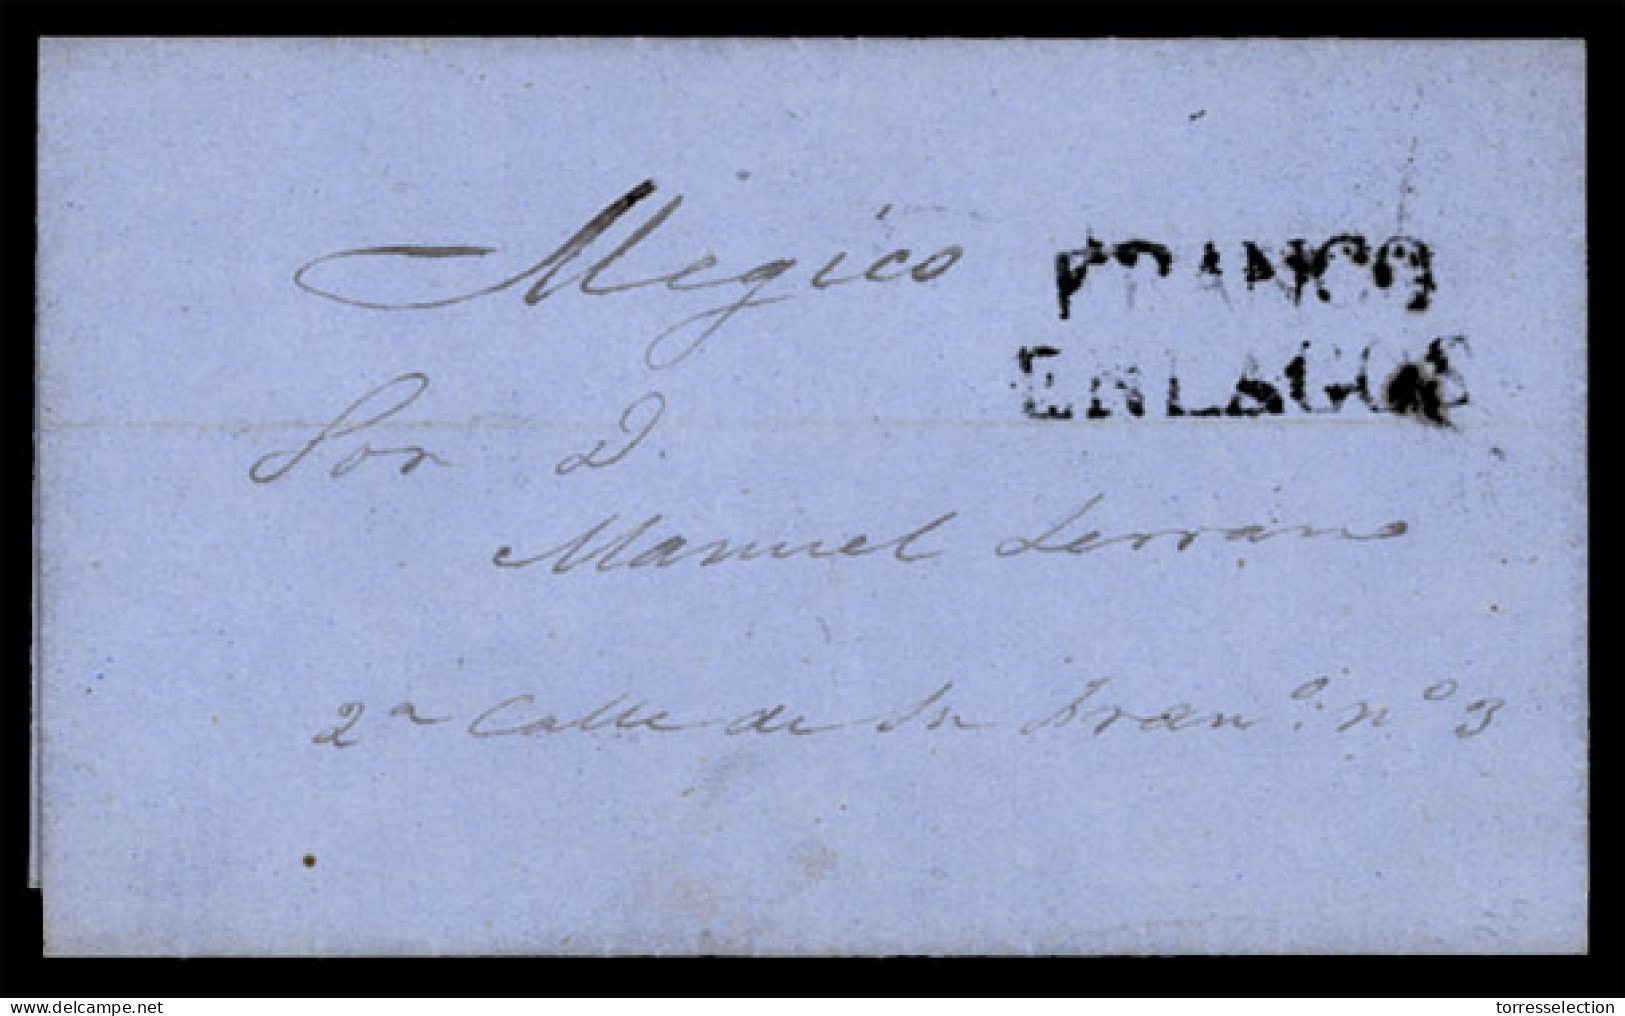 Megico
FRANCO
EN LAGOS
Sor D.
Manuel Serrano
2ª Calle de Sn Fran.co nº 3
www.delcampe.net
torresselection